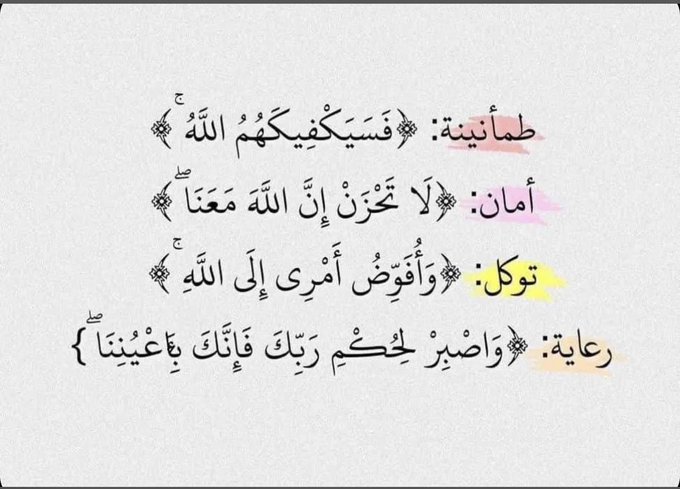 طمأنينة: ﴿فَسَيَكْفِيكَهُمُ اللَّهُ ۚ﴾
أمان: ﴿لَا تَحْزَنْ إِنَّ اللَّهَ مَعَنَا ۖ﴾
توكل: ﴿وَأُفَوِّضُ أَمْرِى إِلَى اللَّهِ ۚ﴾
رعاية: ﴿وَاصْبِرْ لِحُكْمِ رَبِّكَ فَإِنَّكَ بِأَعْيُنِنَا ۖ}